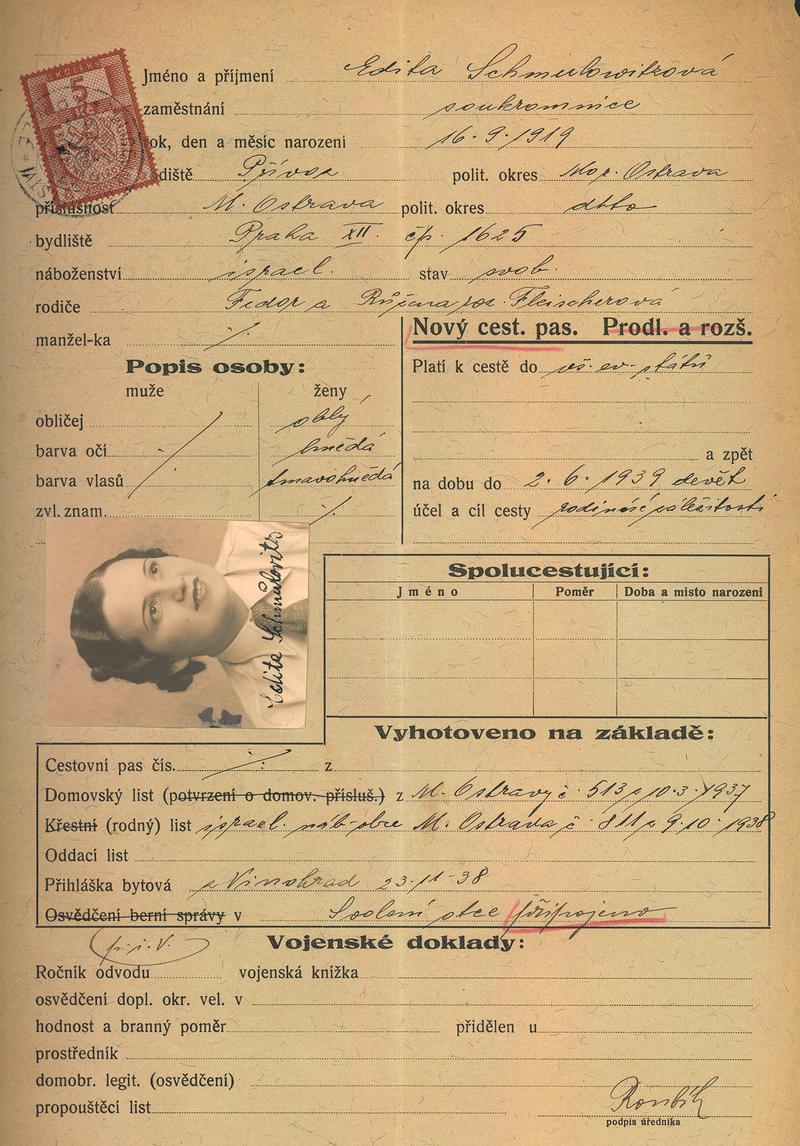 Jméno a příjmení Edita Schmulowitzová
zaměstnání soukromnice
rok, den a měsíc narození 16.9.1919
diště Přívoz polit. okres Mor. Ostrava
příslušnost M. Ostrava polit. okres dtto
bydliště Praha XII. čp. 1625
náboženství israel. stav svob.
rodiče Fedor a Růžena roz. Fleischerová
manžel-ka ./.
Nový cest. pas. Prodl. a rozš.
Popis osoby:
muže ženy
obličej oblý
barva očí hnědá
barva vlasů tmavohnědá
zvl. znam. ./.
Platí k cestě do vš. ev. států
a zpět
na dobu do 2.6.1939 devět
účel a cíl cesty rodinné záležitosti
5
Edita Schmulovitz
Spolucestující:
Jméno Poměr Doba a místo narození
Vyhotoveno na základě:
Cestovní pas čís. ./. z
Domovský list (potvrzení o domov. přísluš.) z M. Ostravy č. 513 z 10.3.1937
Křestní (rodný) list israel. náb. obce M. Ostrava č. 811 z 9.10.1938
Oddací list
Přihláška bytová z Vinohrad 23-11-38
Osvědčení berní správy v otce připojeno
Vojenské doklady:
Ročník odvodu vojenská knížka
osvědčení dopl. okr. vel. v
hodnost a branný poměr přidělen u
prostředník
domobr. legit. (osvědčení)
propouštěcí list
podpis úředníka